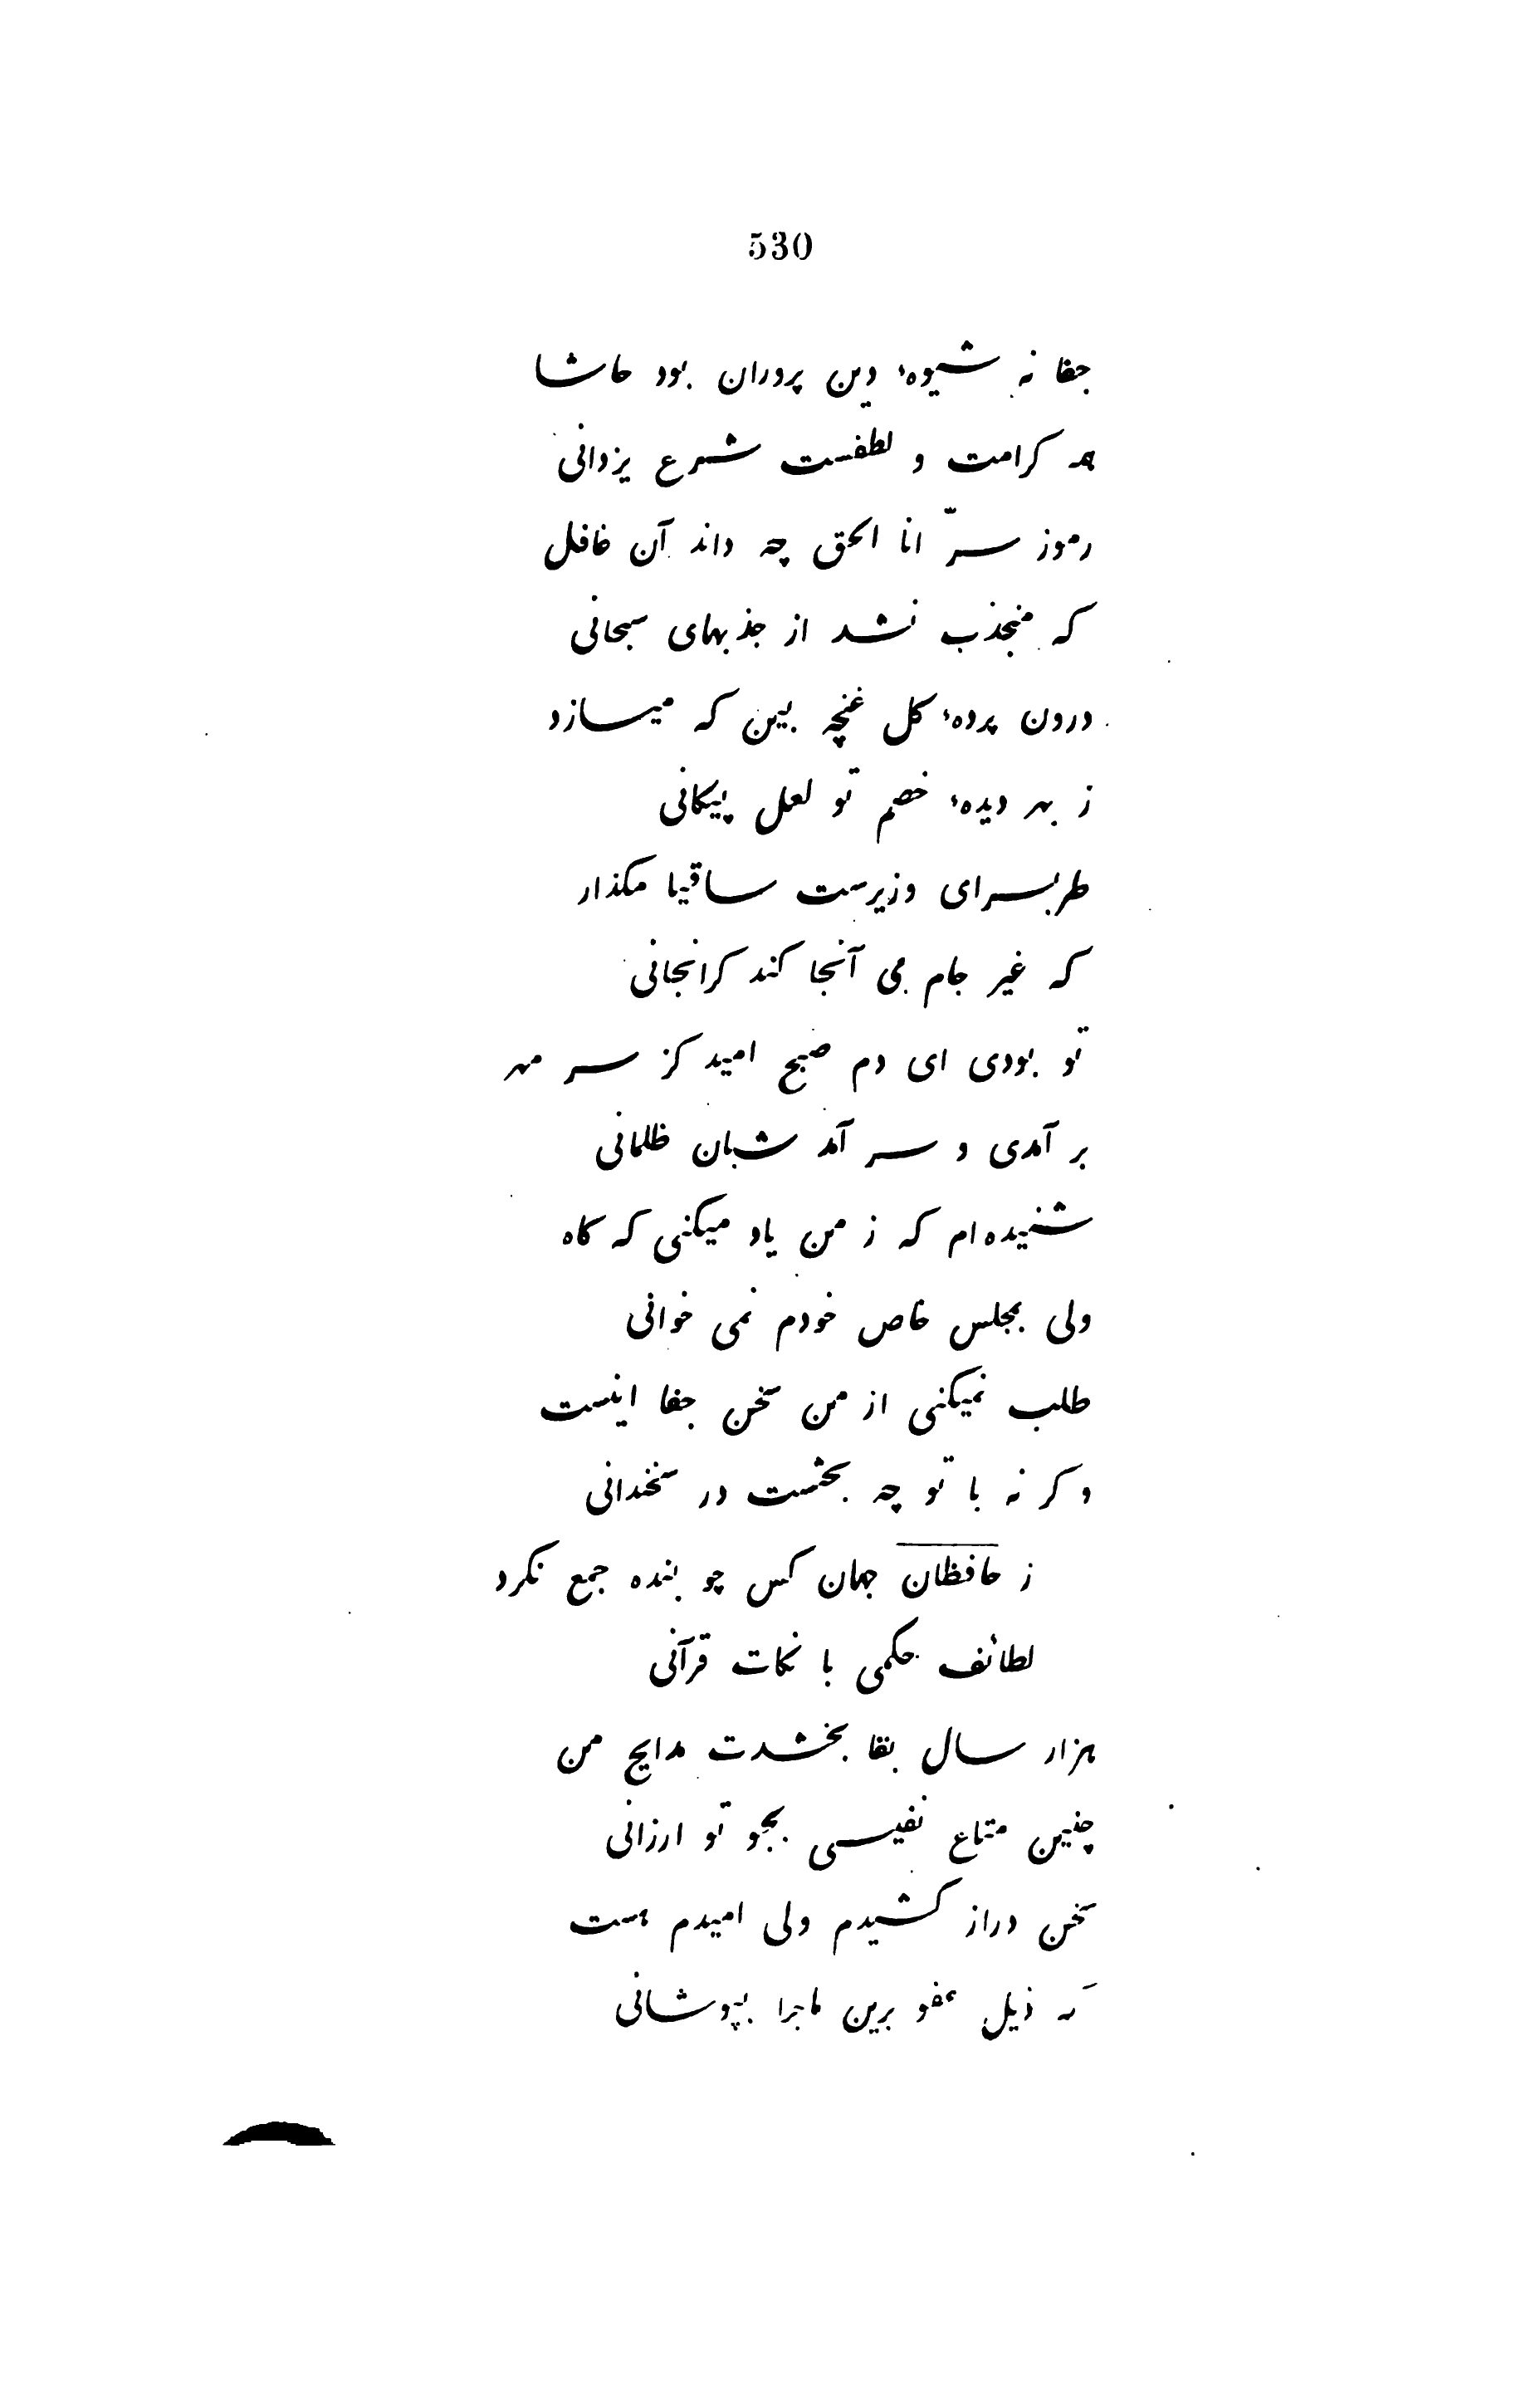 530
جفا نه شیوهٔ دین پروران بود حاشا
همه کرامت و لطفست شرع یزدانی
رموز سرّ انا الحق چه داند آن غافل
که منجذب نشد از جذبهای سبحانی
درون پردهٔ کل غنچه بین که میسازد
ز بهر دیدهٔ خصم تو لعل پیکانی
طربسرای وزیرست ساقیا مکذار
که غیر جام می آنجا کند کرانجانی
تو بودی ای دم صبح امید کز سر مهر
بر آمدی و سر آمد شبان ظلمانی
شنیده‌ام که ز من یاد میکنی که کاه
ولی بمجلس خاص خودم نمی خوانی
طلب نمیکنی از من سخن جفا اینست
و کر نه با تو چه بحثست در سخندانی
ز حافظان جهان کس چو بنده جمع نکرد
لطائف حکمی با نکات قرآنی
هزار سال بقا بخشدت مدایح من
چنین متاع نفیسی بچو تو ارزانی
سخن دراز کشیدم ولی امیدم هست
که ذیل عفو برین ماجرا بپوشانی